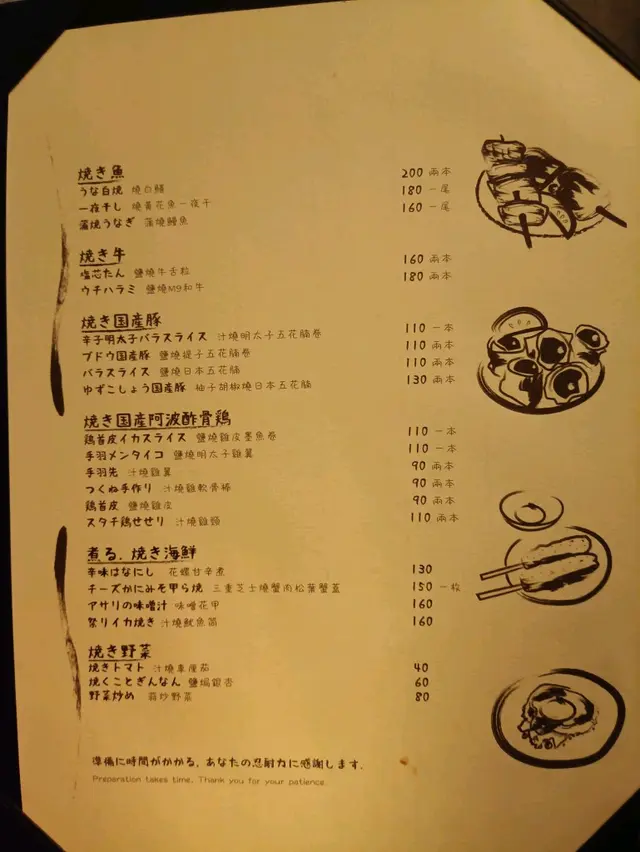 焼き魚
うな白焼 燒白鱔 200 兩本
一夜干し 燒黃花魚一夜干 180 一尾
蒲焼うなぎ 蒲燒鰻魚 160 一尾
焼き牛
塩芯たん 鹽燒牛舌粒 160 兩本
ウチハラミ 鹽燒M9和牛 180 兩本
焼き国産豚
辛子明太子バラスライス 汁燒明太子五花腩卷 110 一本
ブドウ国産豚 鹽燒提子五花腩卷 110 兩本
バラスライス 鹽燒日本五花腩 110 兩本
ゆずこしょう国産豚 柚子胡椒燒日本五花腩 130 兩本
焼き国産阿波酢骨鶏
鶏首皮イカスライス 鹽燒雞皮墨魚卷 110 一本
手羽メンタイコ 鹽燒明太子雞翼 110 一本
手羽先 汁燒雞翼 90 兩本
つくね手作り 汁燒雞軟骨棒 90 兩本
鶏首皮 鹽燒雞皮 90 兩本
スタチ鶏せせり 汁燒雞頸 110 兩本
煮る、焼き海鮮
辛味はなにし 花螺甘辛煮 130
チーズかにみそ甲ら焼 三重芝士燒蟹肉松葉蟹蓋 150 一枚
アサリの味噌汁 味噌花甲 160
祭りイカ焼き 汁燒魷魚筒 160
焼き野菜
焼きトマト 汁燒車厘茄 40
焼くことぎんなん 鹽焗銀杏 60
野菜炒め 蒜炒野菜 80
準備に時間がかかる, あなたの忍耐力に感謝します.
Preparation takes time, Thank you for your patience.